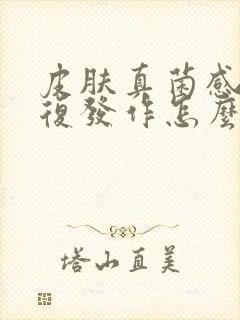 皮肤真菌感
復發作怎麼
塔山直美